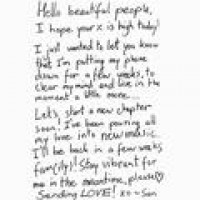 Hello beautiful people,
I hope your x is high today!
I just wanted to let you know
that I'm putting my phone
down for a few weeks, to
clear my mind and live in the
moment a little more.
Let's start a new chapter
soon! I've been pouring all
my love into new music.
I'll be back in a few weeks
fam(ily)! Stay vibrant for
me in the meantime, please♡
Sending LOVE! xo ~